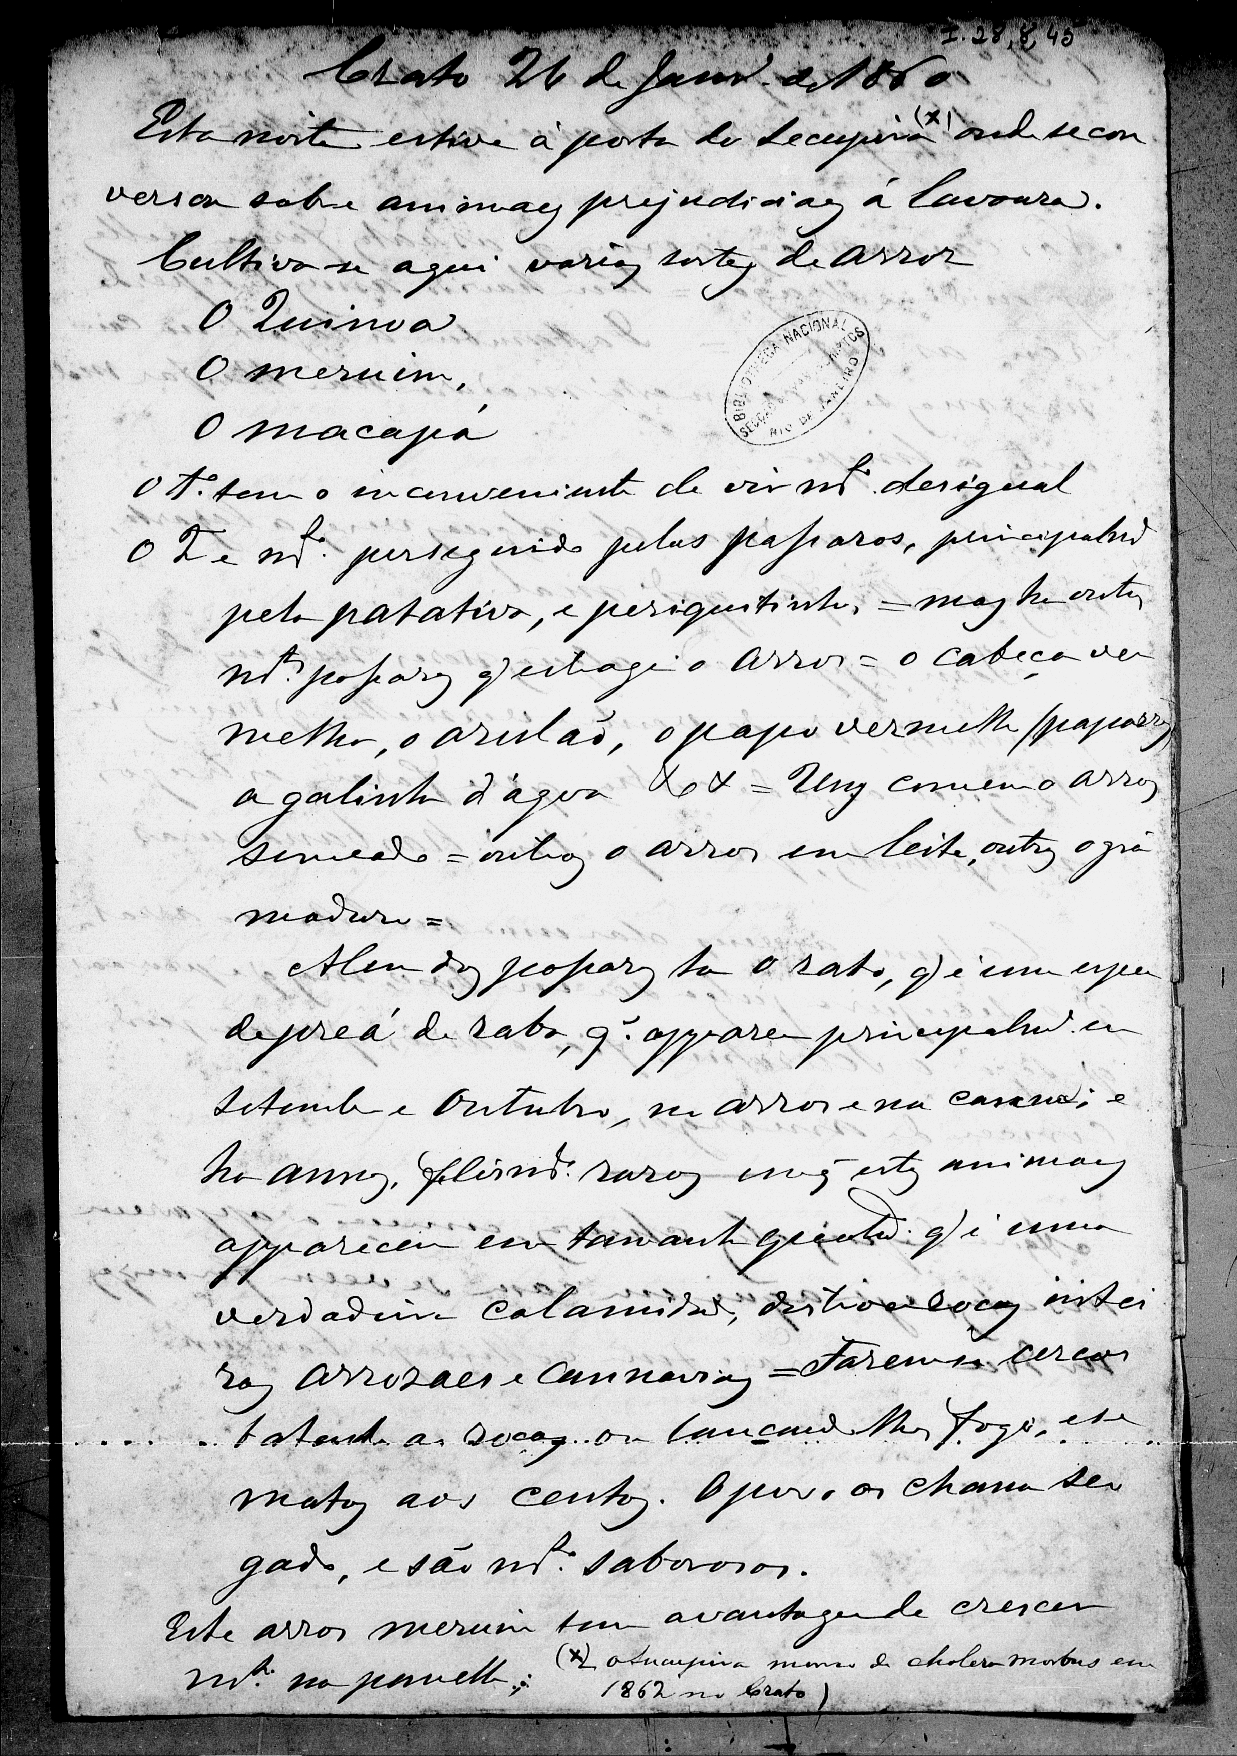 I. 28, 8, 45
Crato 26 de Janr.º de 1860
Esta noite estive á porta do Secupira (x) onde se con
versou sobre animaes prejudiciaes á lavoura.
Cultiva-se aqui varias sortes de arroz
O Quinoa
O meruim,
O macapá
O 1º. tem o inconveniente de vir mt.º desigual
O 2 é mt.º perseguido pelos passaros, principalmt.
pela patativa, e periquitinho, = mas ha outros
mt.os passaros q' estragão o arros = o cabeça ver
melha, o arulão, o papo vermelho (paparros)
a galinha d'ágoa &c &c = Uns comem o arros
semeado = outros o arros em leite, outros o grão
maduro =
Alem dos passaros ha o rato, q' é uma especie
de preá de rabo, q. apparece principalmt. em
Setembro e Outubro, no arros e na canna; e
ha annos, felizmt. raros em q' estes animaes
apparecem em tamanha quantid. q' é uma
verdadeira calamidade, destroem roças intei
ras arrozaes e cannaviaes = Fazem-se cercos
batendo as roças ou lançando-lhes fogo, e se
matão aos centos. O povo os chama seu
gado, e são mt.º saborosos.
Este arros meruim tem a vantagem de crescer
mt.º na panella;
(x) o Sucupira morreu de cholera morbus em
1862 no Crato)
BIBLIOTHECA NACIONAL
SECÇÃO DE MANUSCRIPTOS
RIO DE JANEIRO